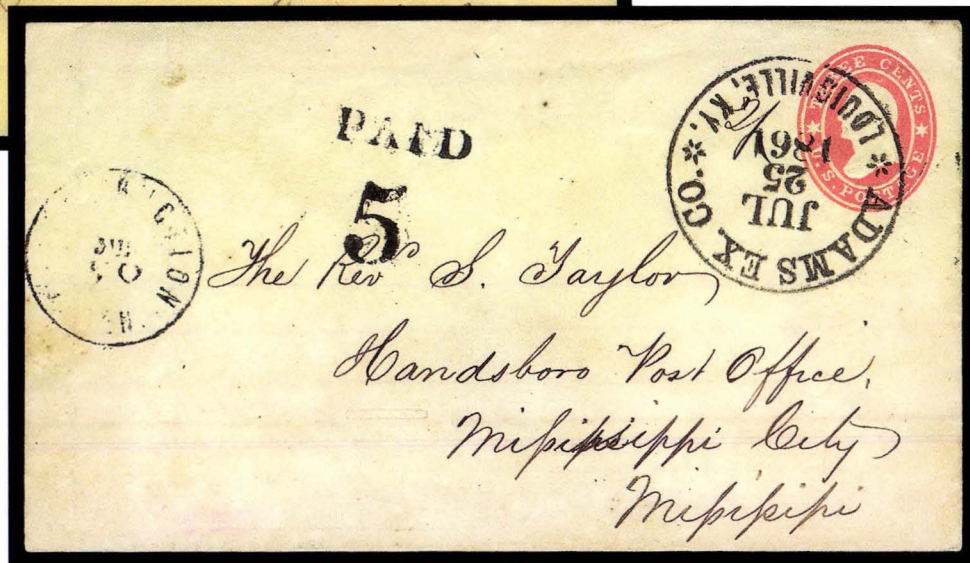 PAID
5
ADAMS EX. CO.
* LOUISVILLE, KY. *
JUL
25
1861
THREE CENTS
U.S. POSTAGE
The Rev S. Taylor
Handsboro Post Office,
Missississippi City
Mississippi